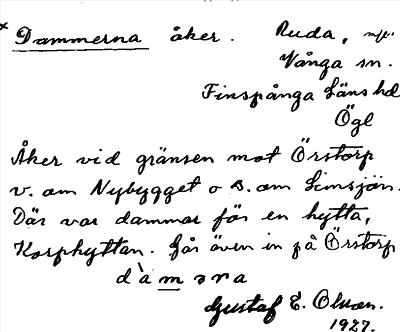 Dammerna åker. Ruda, mfl.
Vånga sn.
Finspånga Läns hd
Ögl
Åker vid gränsen mot Örstorp
v. om Nybygget o s. om Limsjön.
Där var dammar för en hytta,
Korphyttan. Går även in på Örstorp
dàməra
Gustaf E. Olsson.
1927.